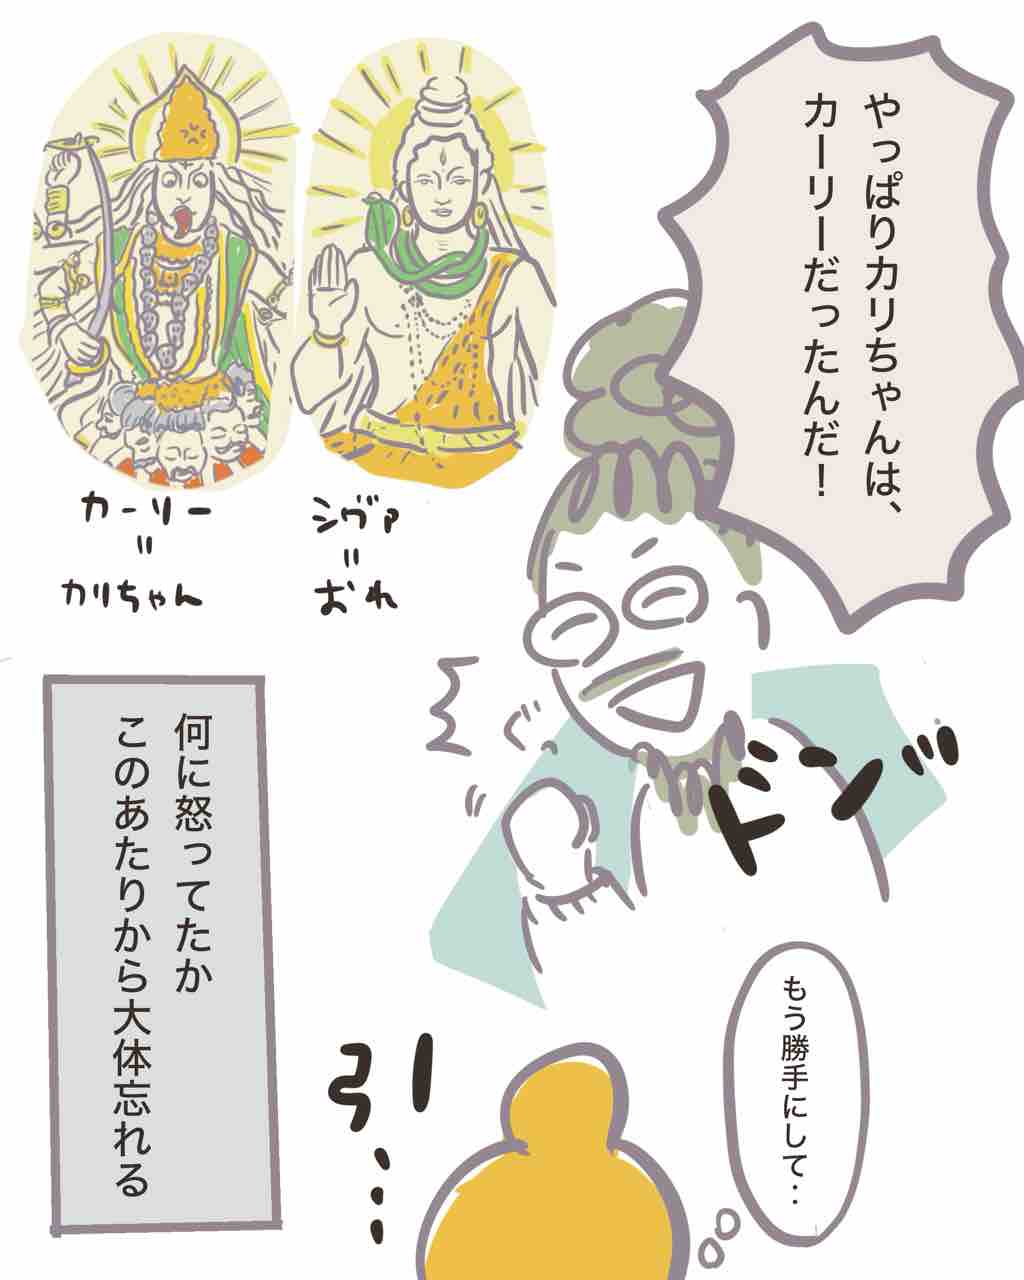 やっぱりカリちゃんは、
カーリーだったんだ！
シヴァ
＝
おれ
カーリー
＝
カリちゃん
ドンッ
何に怒ってたか
このあたりから大体忘れる
もう勝手にして‥
引…